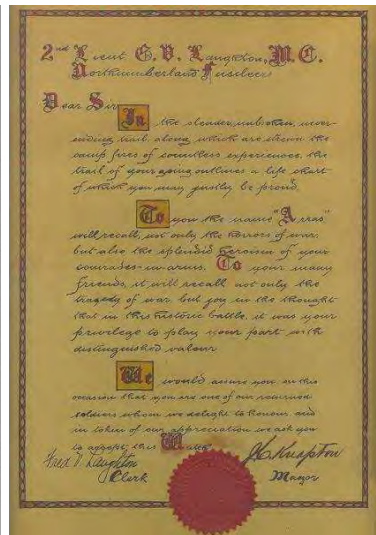 2nd Lieut. G. V. Laughton, M.C.
Northumberland Fusiliers
Dear Sir
In the slender, unbroken, never
ending trail along which are strewn the
camp fires of countless experiences, the
trail of your going outlines a life chart
of which you may justly be proud.
To you the name "Arras"
will recall, not only the horrors of war,
but also the splendid heroism of your
comrades-in-arms. To your many
friends, it will recall not only the
tragedy of war but joy in the thought
that in this historic battle, it was your
privilege to play your part with
distinguished valour
We would assure you on this
occasion that you are one of our returned
soldiers whom we delight to honour and
in token of our appreciation we ask you
to accept this Watch.
Fred D Laughton J C Knapton
Clerk Mayor